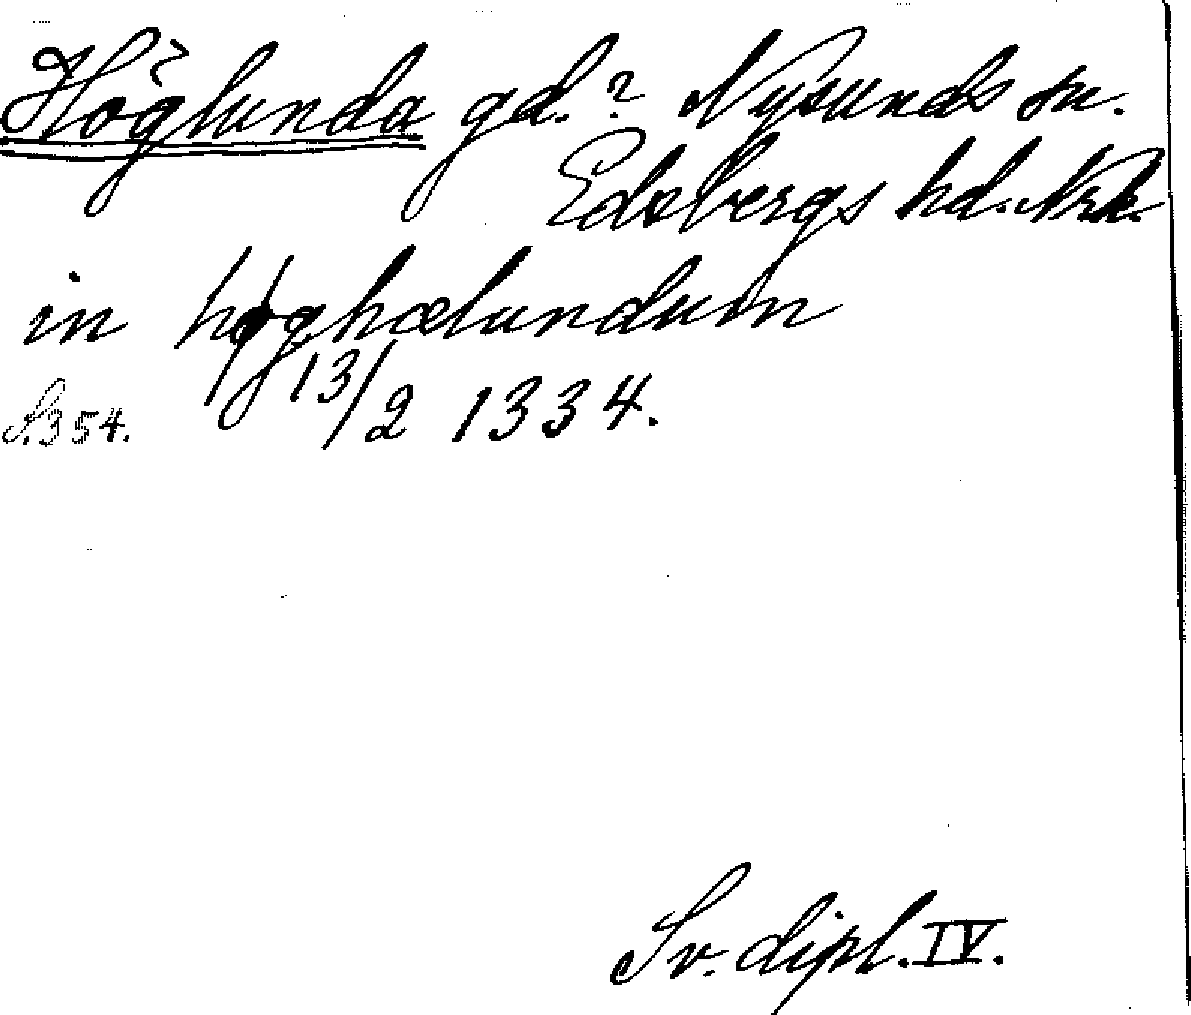 Höglunda gd.? Nysunds sn.
Edsbergs hd. Nrk.
in høghælundum
S. 354. 13/2 1334.
Sv. dipl. IV.